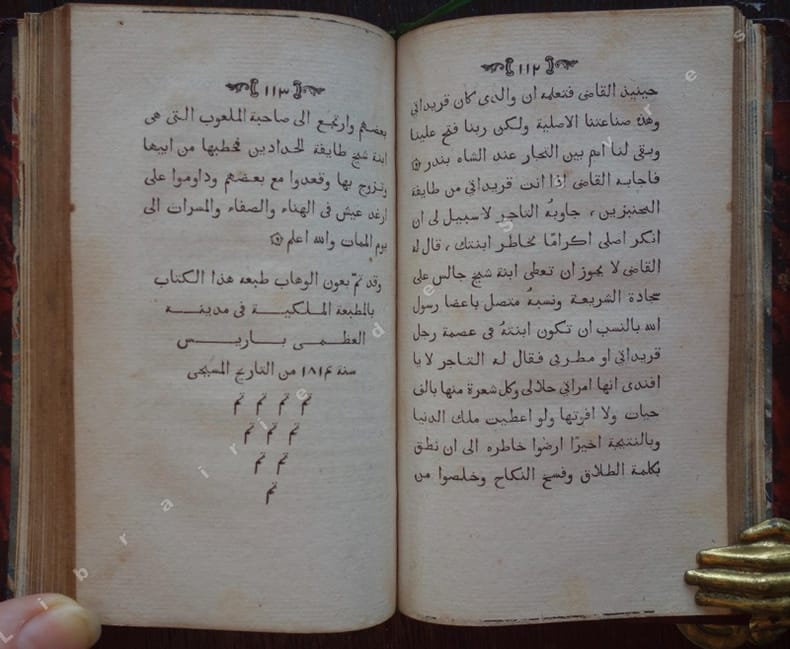 ١١٢
حينيذ القاضى فتعلمه ان والدى كان قريداتى
وهذه صناعتنا الاصلية ولكن ربنا فتح علينا
وبقى لنا اسم بين التجار عند الشاه بندر
فاجابه القاضى اذا انت قريداتى من طايفة
الجنبزيين، جاوبهُ التاجر لا سبيل لى ان
انكر اصلى اكرامًا لخاطر ابنتك، قال له
القاضى لا يجوز ان تعطى ابنة شيخ جالس على
سجادة الشريعة ونسبهُ متصل باعضا رسول
الله بالنسب ان تكون ابنتهُ فى عصمة رجل
قريداتى او مطربى فقال له التاجر لا يا
افندى انها امراتى حلالى وكل شعرة منها بالف
حيات ولا افرتها ولو اعطيت ملك الدنيا
وبالنتيجة اخيرًا ارضوا خاطره الى ان نطق
بكلمة الطلاق وفسخ النكاح وخلصوا من
١١٣
بعضهم وارتجع الى صاحبة الملعوب التى هى
ابنة شيخ طايفة الحدادين فخطبها من ابيها
وتزوج بها وقعدوا مع بعضهم وداوموا على
ارغد عيش فى الهناء والصفاء والمسرات الى
يوم الممات والله اعلم
وقد تمّ بعون الوهاب طبعه هذا الكتاب
بالمطبعة الملكية فى مدينة
العظمى باريس
سنة ١٨١٤ من التاريخ المسيحى
تم تم تم تم
تم تم تم
تم تم
تم
Librairie de s yres